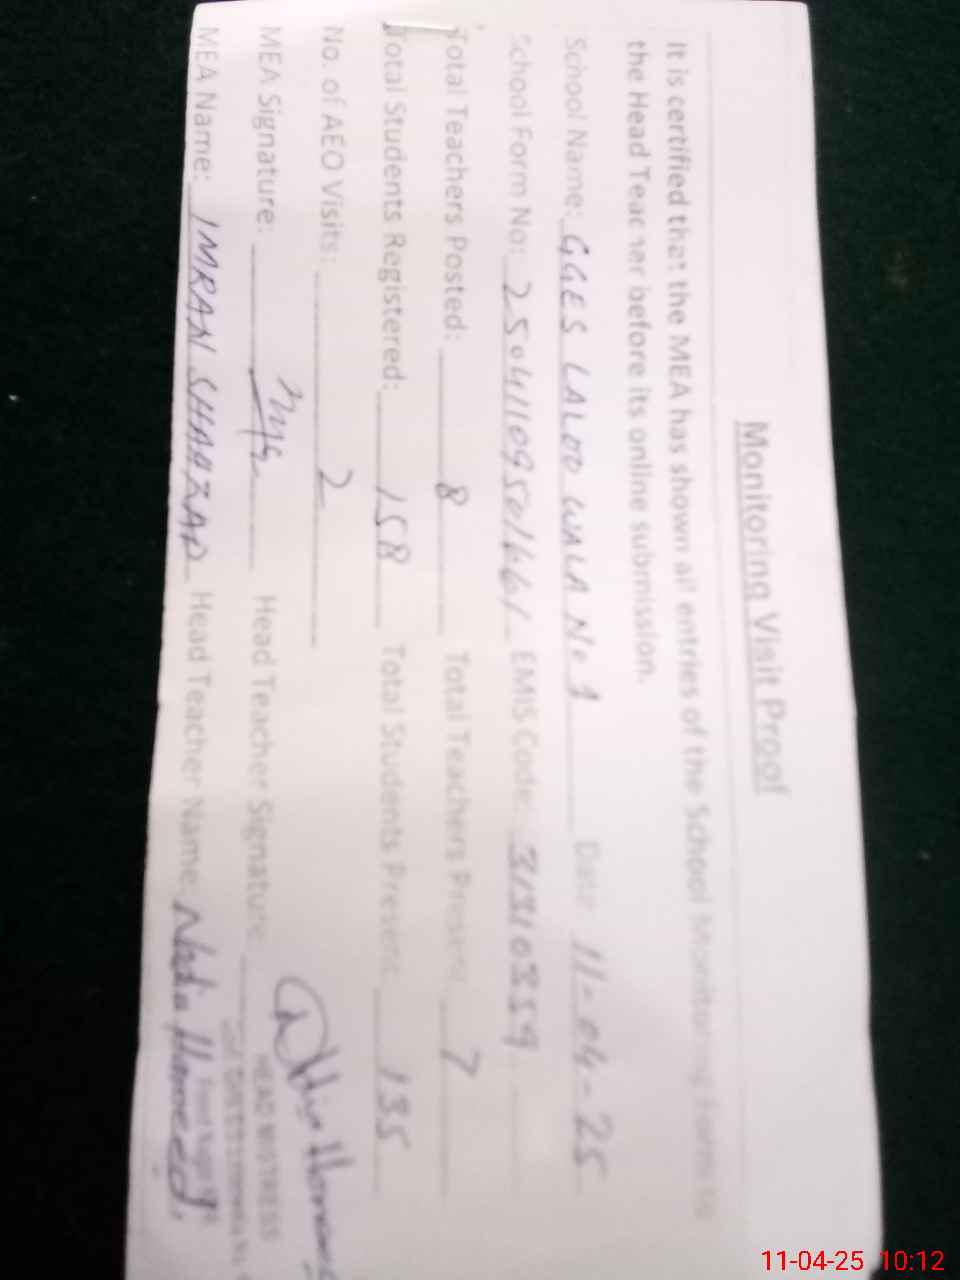 Monitoring Visit Proof
It is certified that the MEA has shown all entries of the School Monitoring Form to
the Head Teacher before its online submission.
School Name: GGES LALOO WALA No 1 Date: 11-04-25
School Form No: 25041109501661 EMIS Code: 31310359
Total Teachers Posted: 8 Total Teachers Present: 7
Total Students Registered: 158 Total Students Present: 135
No. of AEO Visits: 2
MEA Signature: Head Teacher Signature:
HEAD MISTRESS
MEA Name: IMRAN SHAHZAD Head Teacher Name: Nadia Hameed
11-04-25 10:12